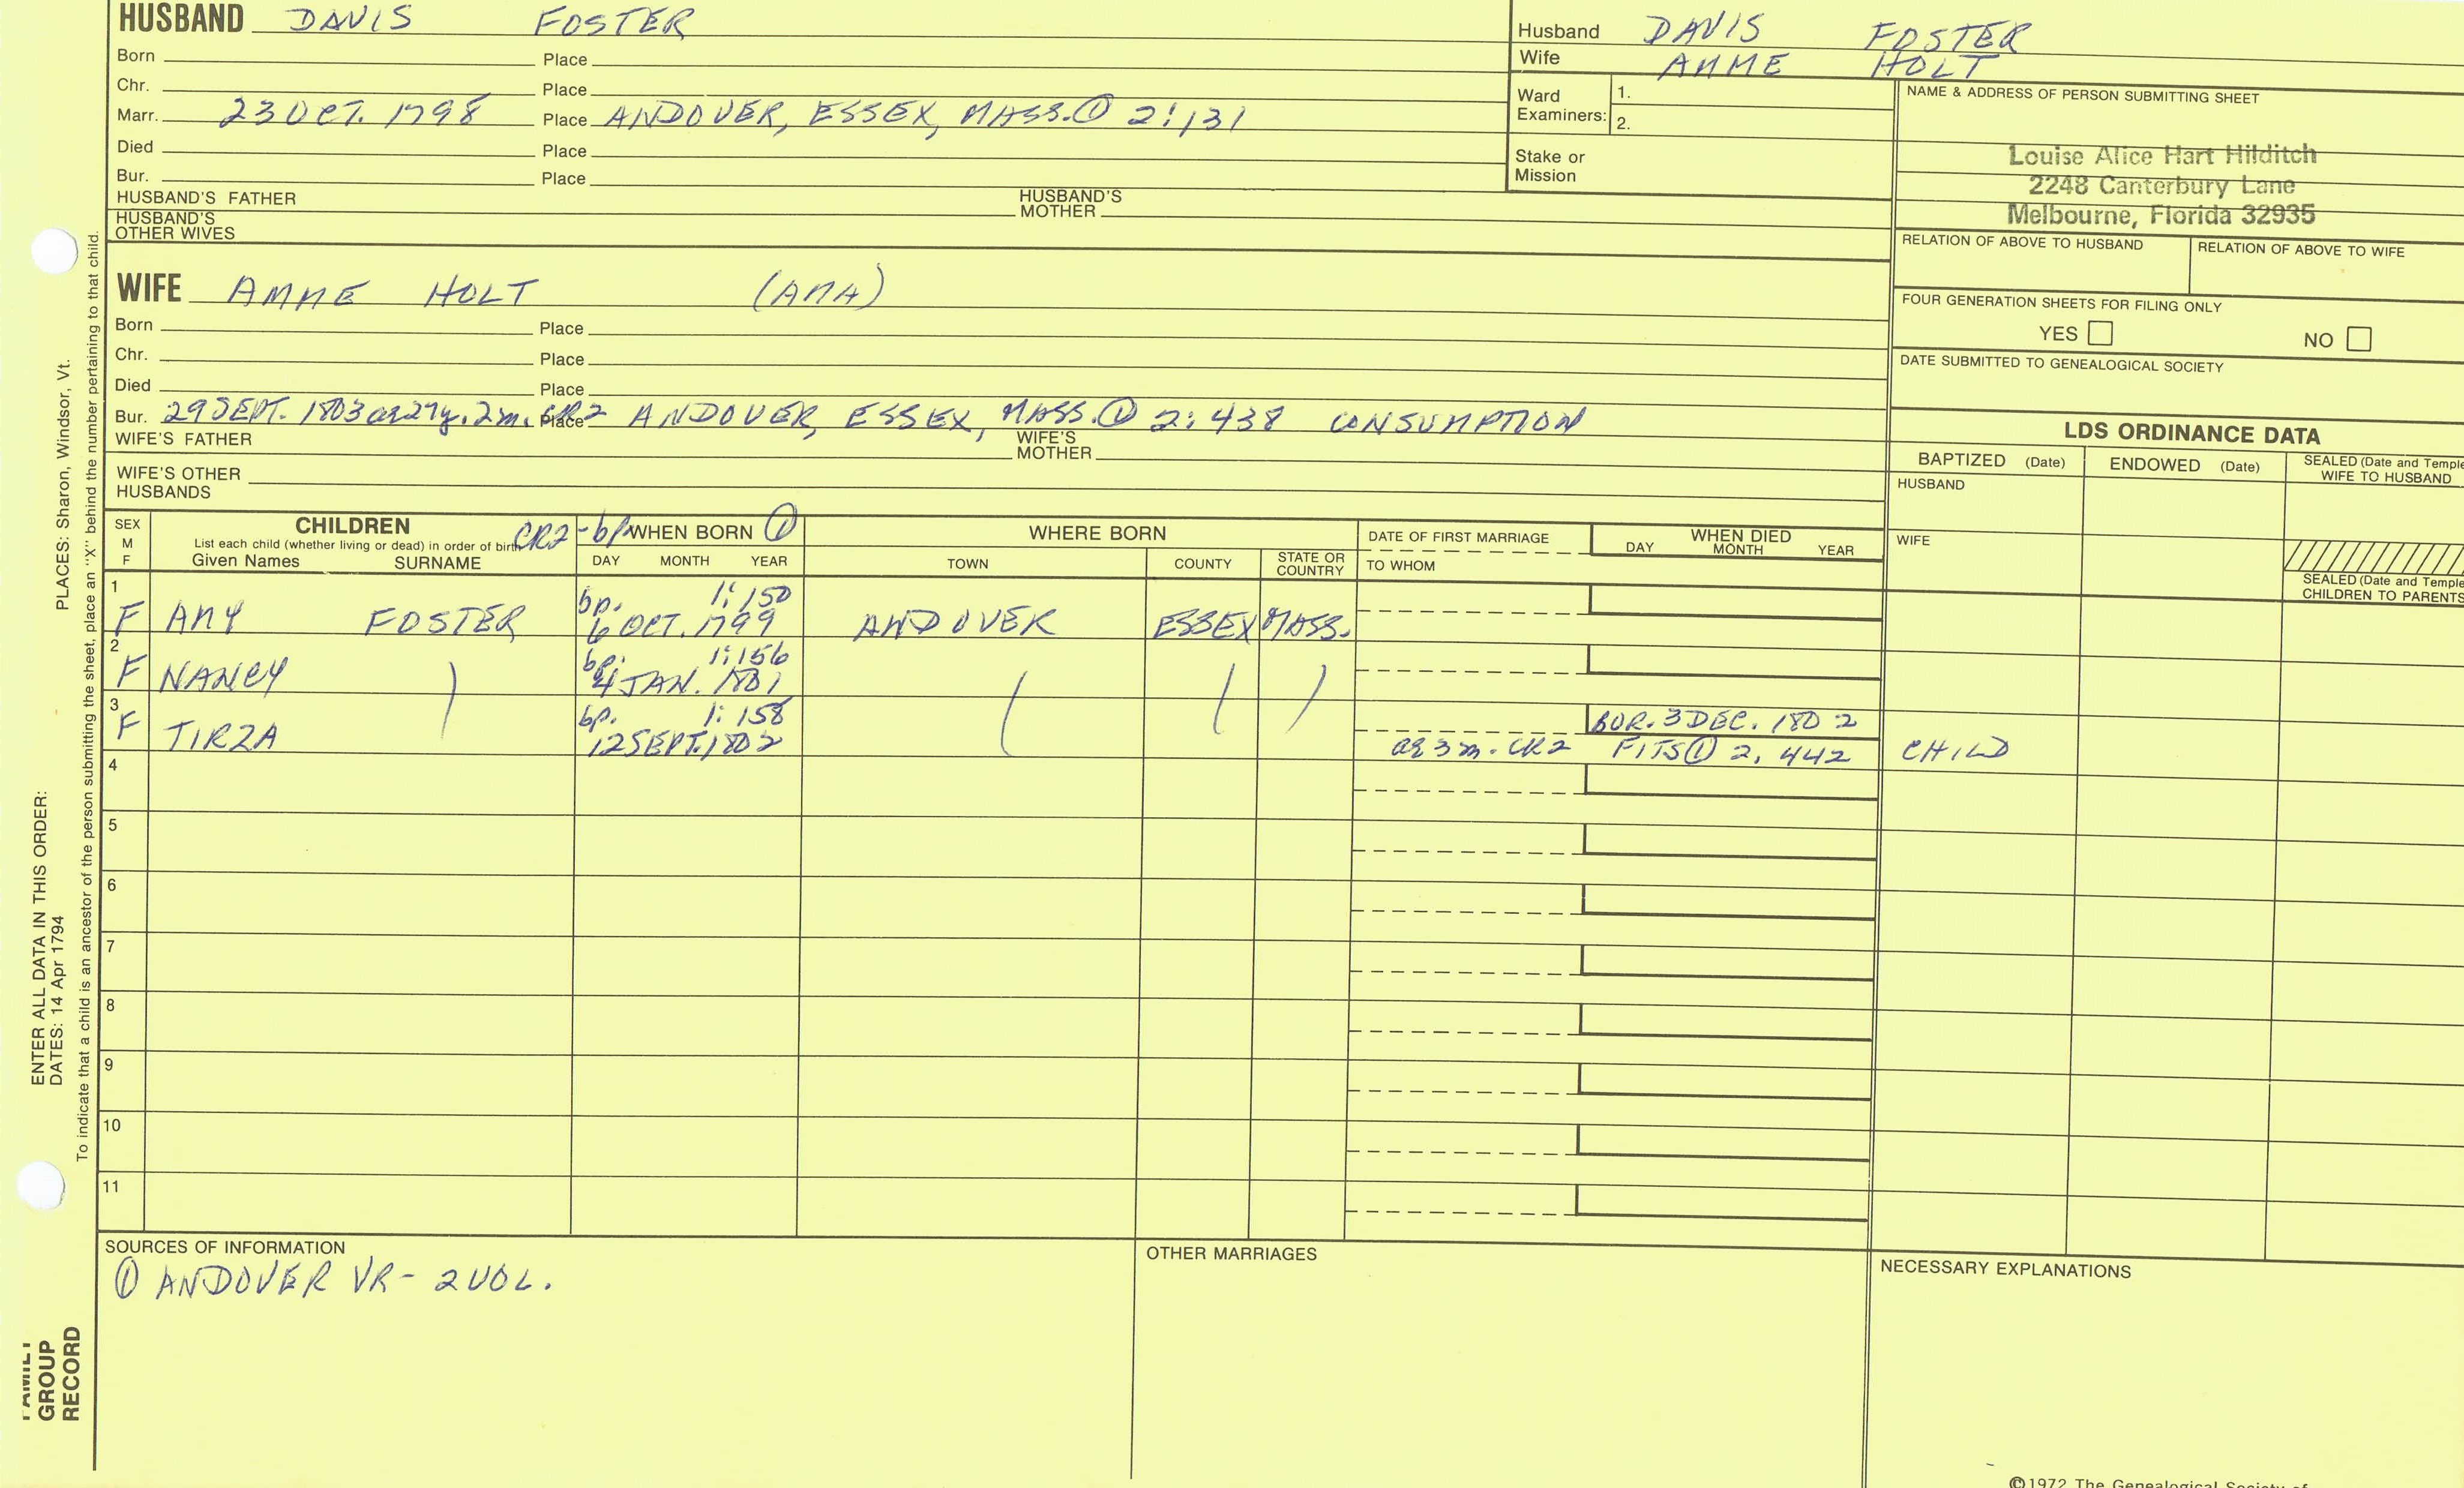 HUSBAND DAVIS FOSTER
Born Place
Chr. Place
Marr. 23 OCT. 1798 Place ANDOVER, ESSEX, MASS. ① 2:131
Died Place
Bur. Place
HUSBAND'S FATHER HUSBAND'S MOTHER
HUSBAND'S OTHER WIVES
Husband DAVIS FOSTER
Wife AMME HOLT
Ward Examiners: 1.
2.
Stake or Mission
NAME & ADDRESS OF PERSON SUBMITTING SHEET
Louise Alice Hart Hilditch
2248 Canterbury Lane
Melbourne, Florida 32935
RELATION OF ABOVE TO HUSBAND RELATION OF ABOVE TO WIFE
FOUR GENERATION SHEETS FOR FILING ONLY
YES NO
DATE SUBMITTED TO GENEALOGICAL SOCIETY
WIFE AMME HOLT (AMA)
Born Place
Chr. Place
Died Place
Bur. 29 SEPT. 1803 ae 27y. 2m. CR2 Place ANDOVER, ESSEX, MASS. ① 2:438 CONSUMPTION
WIFE'S FATHER WIFE'S MOTHER
WIFE'S OTHER HUSBANDS
LDS ORDINANCE DATA
BAPTIZED (Date) ENDOWED (Date) SEALED (Date and Temple
WIFE TO HUSBAND
HUSBAND
WIFE
SEALED (Date and Temple
CHILDREN TO PARENTS
SEX M F
CHILDREN
List each child (whether living or dead) in order of birth
Given Names SURNAME
CR2-bp WHEN BORN ①
DAY MONTH YEAR
WHERE BORN
TOWN COUNTY STATE OR COUNTRY
DATE OF FIRST MARRIAGE
TO WHOM
WHEN DIED
DAY MONTH YEAR
1 bp. 1:150
F AMY FOSTER 6 OCT. 1799 ANDOVER ESSEX MASS.
2 bp. 1:156
F NANCY ) 4 JAN. 1801 ( ( )
3 bp. 1:158 BUR. 3 DEC. 1802
F TIRZA 12 SEPT. 1802 ae 3m. CR2 FITS ① 2, 442 CHILD
4
5
6
7
8
9
10
11
SOURCES OF INFORMATION
① ANDOVER VR- 2 VOL.
OTHER MARRIAGES
NECESSARY EXPLANATIONS
©1972 The Genealogical Society of
PLACES: Sharon, Windsor, Vt.
To indicate that a child is an ancestor of the person submitting the sheet, place an "X" behind the number pertaining to that child.
ENTER ALL DATA IN THIS ORDER:
DATES: 14 Apr 1794
FAMILY
GROUP
RECORD